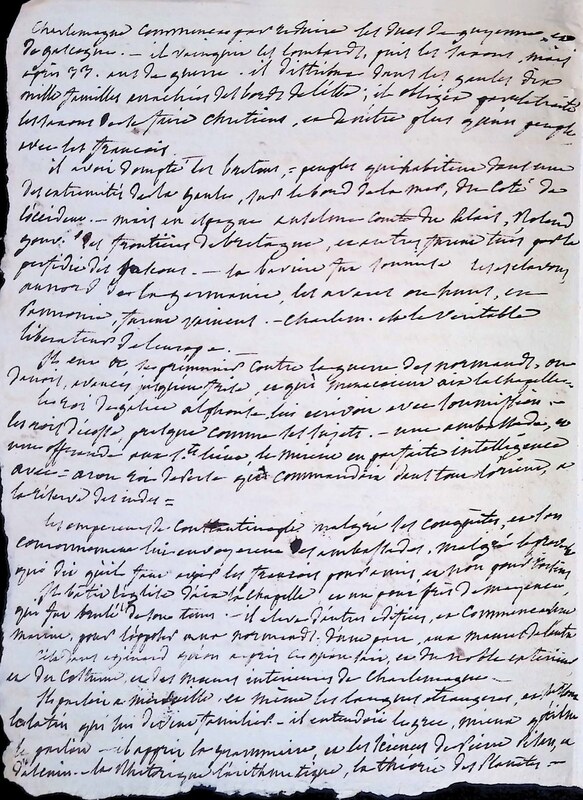 Charlemagne commença par réduire les ducs de guyenne, et
de gascogne. — il vainquit les lombards, puis les saxons, mais
après 33. ans de guerre. il distribua dans les gaules dix
mille familles arrachées des bords de l'elbe; il obligea par le traité
les saxons de se faire chretiens, et de n'être plus qu'un peuple
avec les francais.
il avoit dompté les bretons, = peuples qui habitent dans une
des extremités de la gaule, sur le bord de la mer, du coté de
l'occident. — mais en espagne anselme comte du palais, Roland
gouv. des frontières de bretagne, et autres furent tués par la
perfidie des gascons. — la baviere fut soumise les esclavons
au nord de la germanie, les avares ou huns, en
Pannonie, furent vaincus. — Charlem. est le veritable
liberateur de l'europe.
Il eut à se premunir contre la guerre des normands, ou
danois, avancés jusqu'en frise, et qui menacoient aix la chapelle —
le roi de galice alphonse, lui ecrivoit avec soumission —
les rois d'ecosse, presque comme ses sujets. — une ambassade, et
une offrande aux sts lieux, le mirent en parfaite intelligence
avec = aron roi de perse qui commandoit dans tout l'orient, à
la réserve des indes =
les empereurs de Constantinople malgré ses conquêtes, et son
couronnement lui envoyerent des ambassades, malgré le proverbe
qui dit qu'il faut avoir les francons pour amis, et non pour voisins
Il bâtit l'eglise d'aix la chapelle, et un pont près de mayence,
qui fut brulé de son tems — il eleva d'autres edifices, et commença une
marine, pour l'opposer aux normands, d'une part, aux maures de l'autre
c'est dans eginard qu'on a pris ce qu'on sait, et du noble exterieur
et du costume, et des mœurs interieures de Charlemagne —
Il parloit à merveille et même les langues etrangeres, et surtout
le latin qui lui devint familier — il entendoit le grec, mieux qu'il ne
le parloit — il apprit la grammaire, et les sciences de Pierre Pisan, et
d'alcuin — la Rhetorique l'arithmetique, la théorie des Planetes —